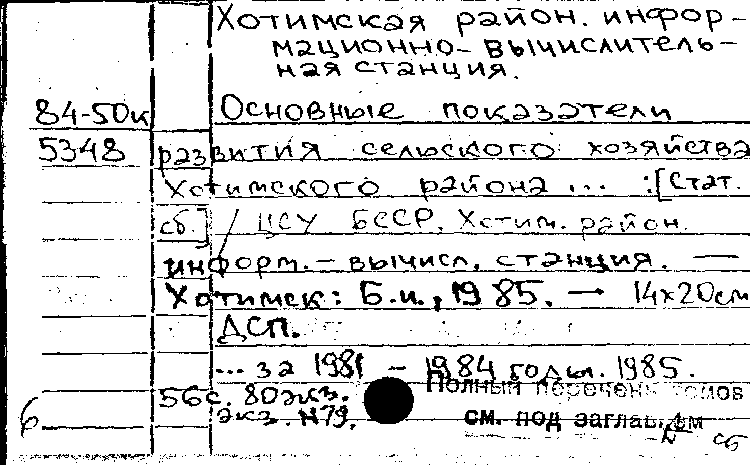 Хотимская район. инфор-
мационно-вычислитель-
ная станция.
84-50к Основные показатели
5348 развития сельского хозяйства
Хотимского района ... : [Стат.
сб.] / ЦСУ БССР, Хотим. район.
информ.-вычисл. станция. —
Хотимск: Б.и., 1985. — 14х20см
ДСП.
... за 1981 - 1984 годы. 1985.
56с. 80экз.
Полный перечень томов
экз. N79.
см. под заглавием
6
сб